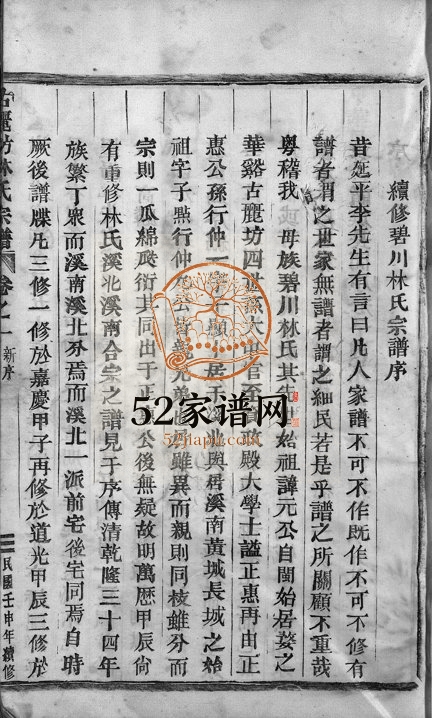 續修碧川林氏宗譜序
昔延平李先生有言曰凡人家譜不可不作旣作不可不修有
譜者謂之世家無譜者謂之細民若是乎譜之所關顧不重哉
粵稽我 母族碧川林氏其先世始祖諱元公自閩始居婺之
華谿古麗坊四世孫大中官至殿大學士諡正惠再由正
惠公孫行仲一字顯居示溪北與居溪南黃城長城之始
祖字子點行仲雖異而親則同棱雖分而
宗則一瓜綿瓞衍其同出于正公後無疑故明萬歷甲辰尙
有重修林氏溪北溪南合宗之譜見于序傳清乾隆三十四年
族繁丁衆而溪南溪北分焉而溪北一派前宅後宅同焉自時
厥後譜牒凡三修一修於嘉慶甲子再修於道光甲辰三修於
古麗坊林氏宗譜 卷之一 新序
民國壬申年續修
52家谱网